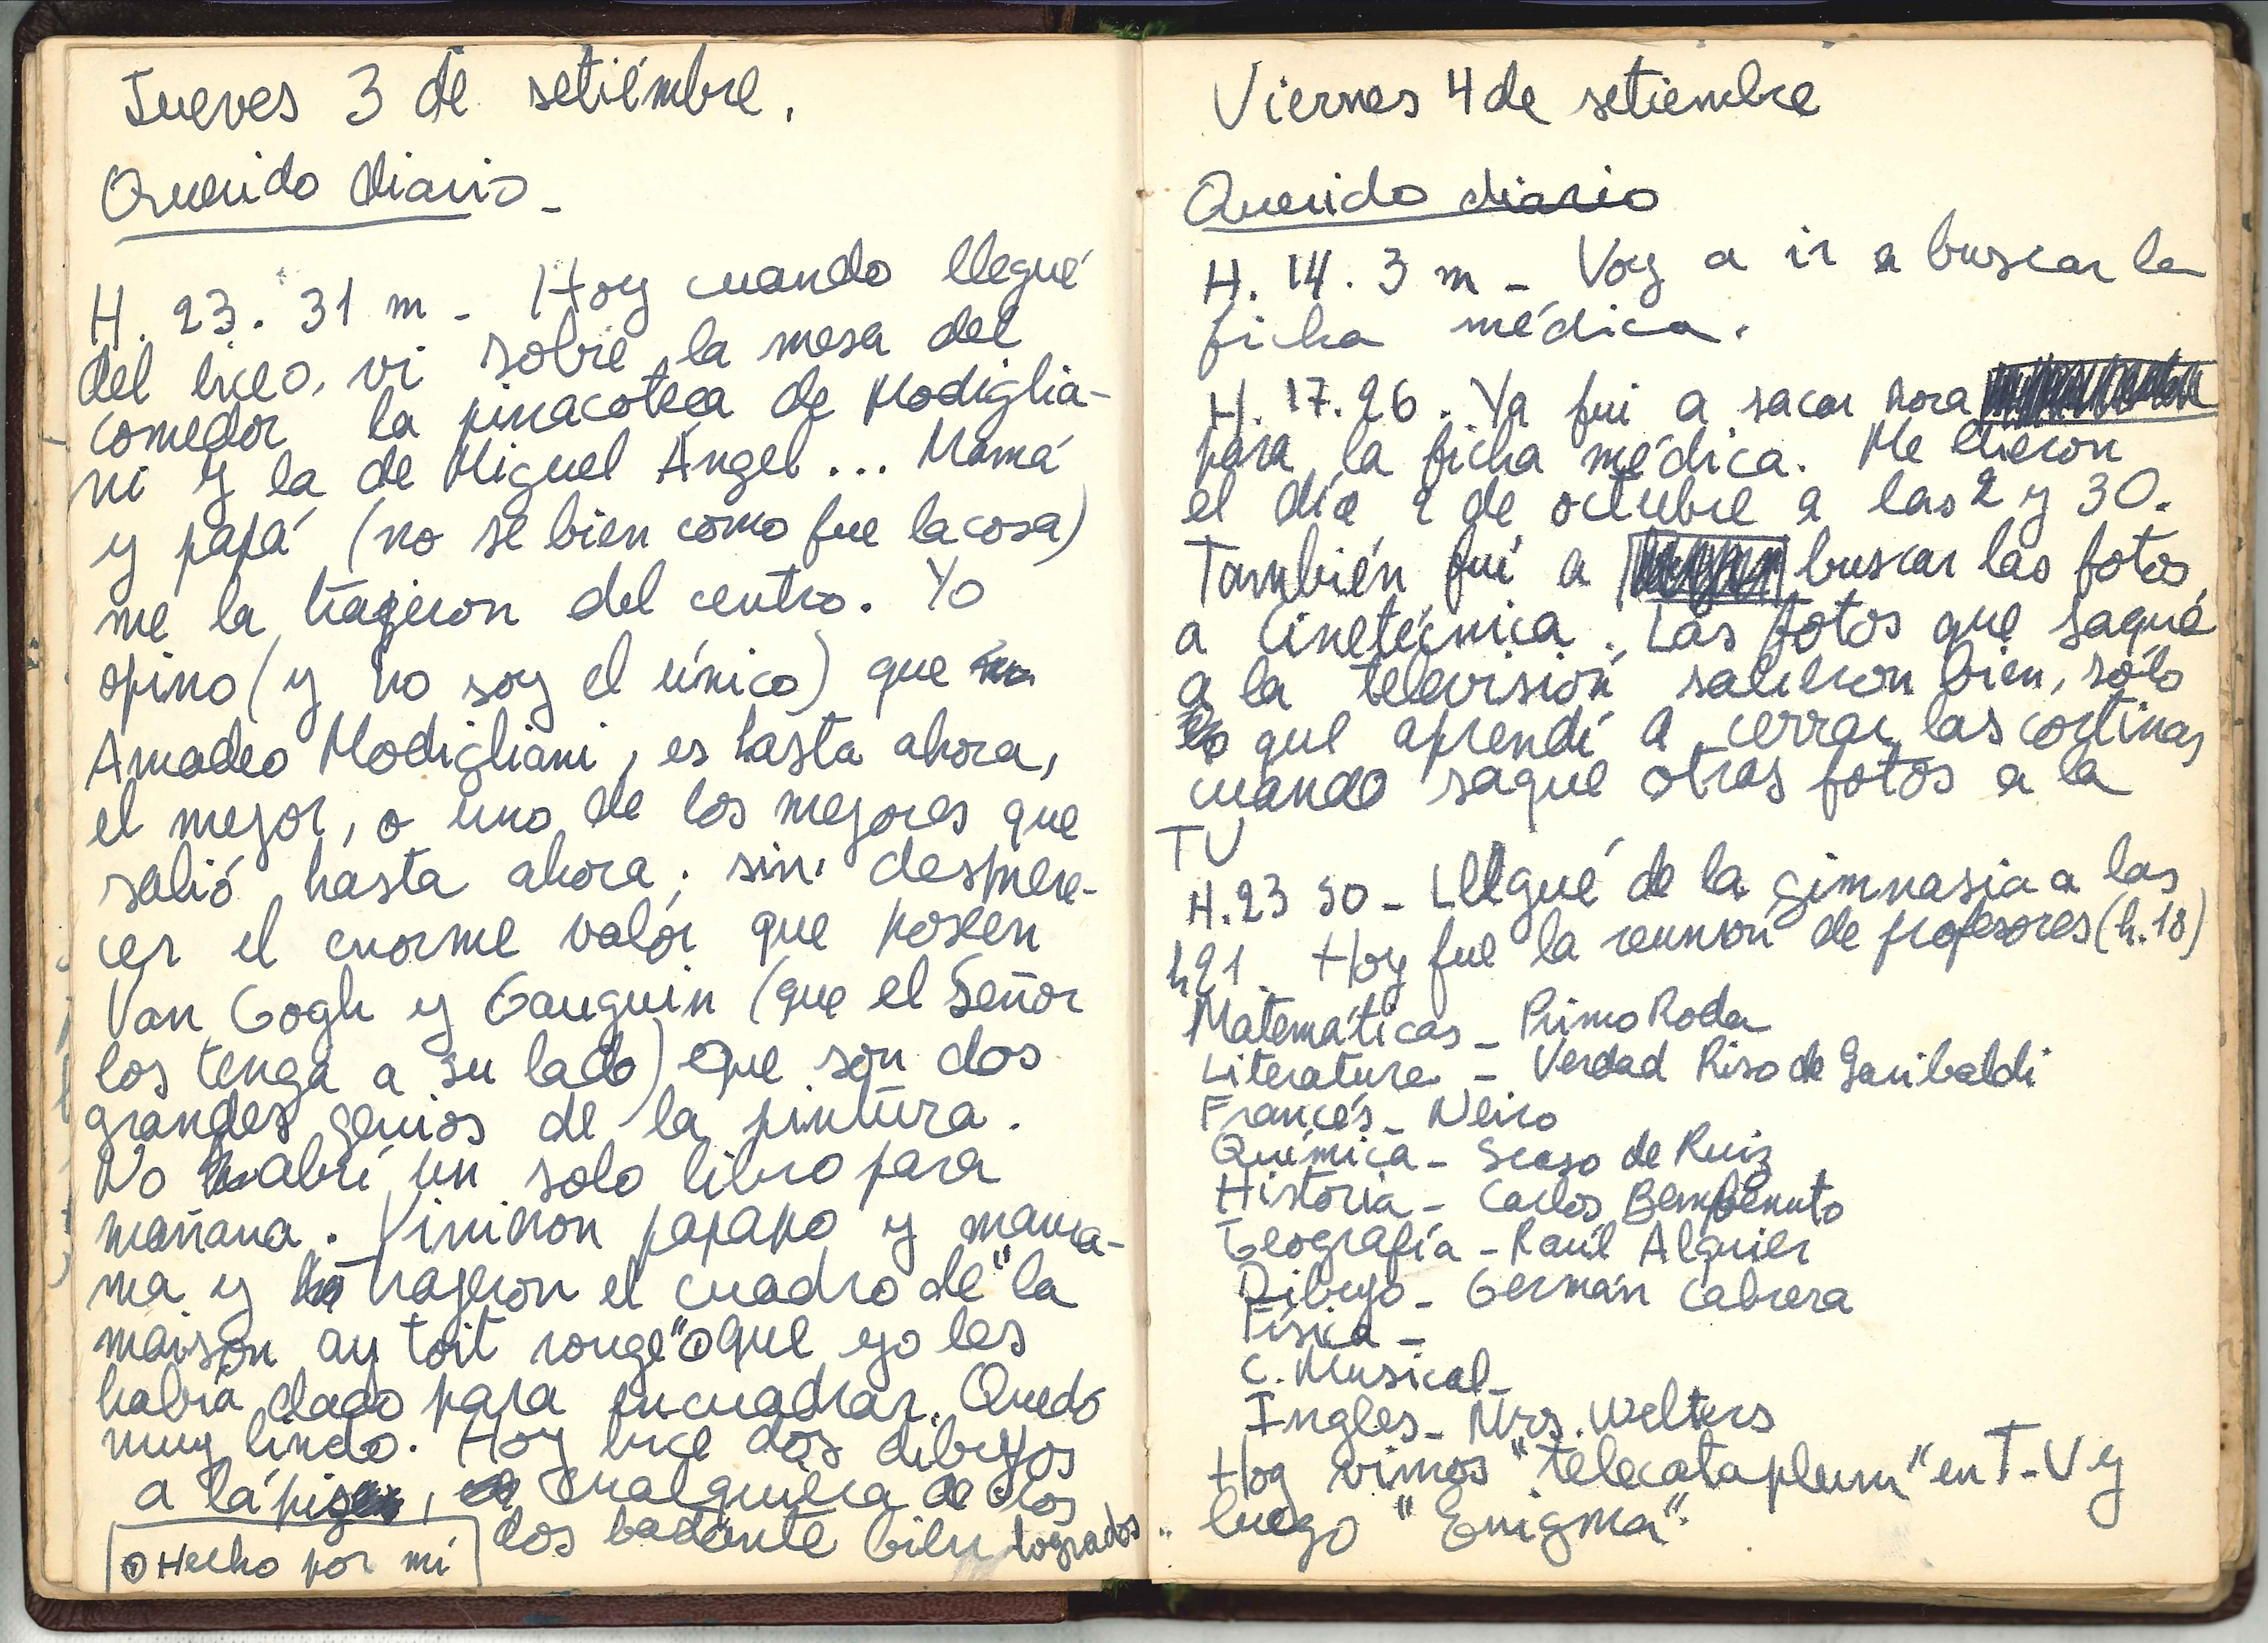 Jueves 3 de setiémbre.
Querido diario_
H. 23. 31 m - Hoy cuando llegué
del liceo, vi sobre la mesa del
comedor la pinacoteca de Modiglia-
ni y la de Miguel Ángel... Mamá
y papá (no se bien como fue la cosa)
me la trageron del centro. Yo
opino (y no soy el único) que
Amadeo Modigliani, es hasta ahora,
el mejor, o uno de los mejores que
salió hasta ahora; sin despmere-
cer el enorme valor que poseen
Van Gogh y Gauguin (que el Señor
los tenga a su lado) Que son dos
grandes genios de la pintura.
No abrí un solo libro para
mañana. Vinieron papapo y mama-
ma y trageron el cuadro de "la
maison au toit rouge" ⊙ que yo les
había dado para encuadrar. Quedó
muy lindo. Hoy hice dos dibujos
a lápiz, cualquiera de los
dos bastante bien logrados
⊙ Hecho por mí
Viernes 4 de setiembre
Querido diario
H. 14. 3 m - Voy a ir a buscar la
ficha médica.
H. 17. 26. Ya fui a sacar hora
para la ficha médica. Me dieron
el día 2 de octubre a las 2 y 30.
También fuí a buscar las fotos,
a Cinetécnica. Las fotos que saqué
a la televisión salieron bien, sólo
que aprendí a cerrar las cortinas
cuando saque otras fotos a la
TV
H. 23 50 - Llegué de la gimnasia a las
h 21. Hoy fue la reunión de profesores (h. 18)
Matemáticas - Primo Roda
Literatura - Verdad Riso de Garibaldi
Francés - Neiro
Química - Scaso de Ruiz
Historia - Carlos Bembenuto
Geografía - Raúl Alguier
Dibujo - Germán Cabrera
Física -
C. Musical -
Ingles - Mrs. Welters
Hoy vimos "telecataplum" en T.V y
luego "Enigma".